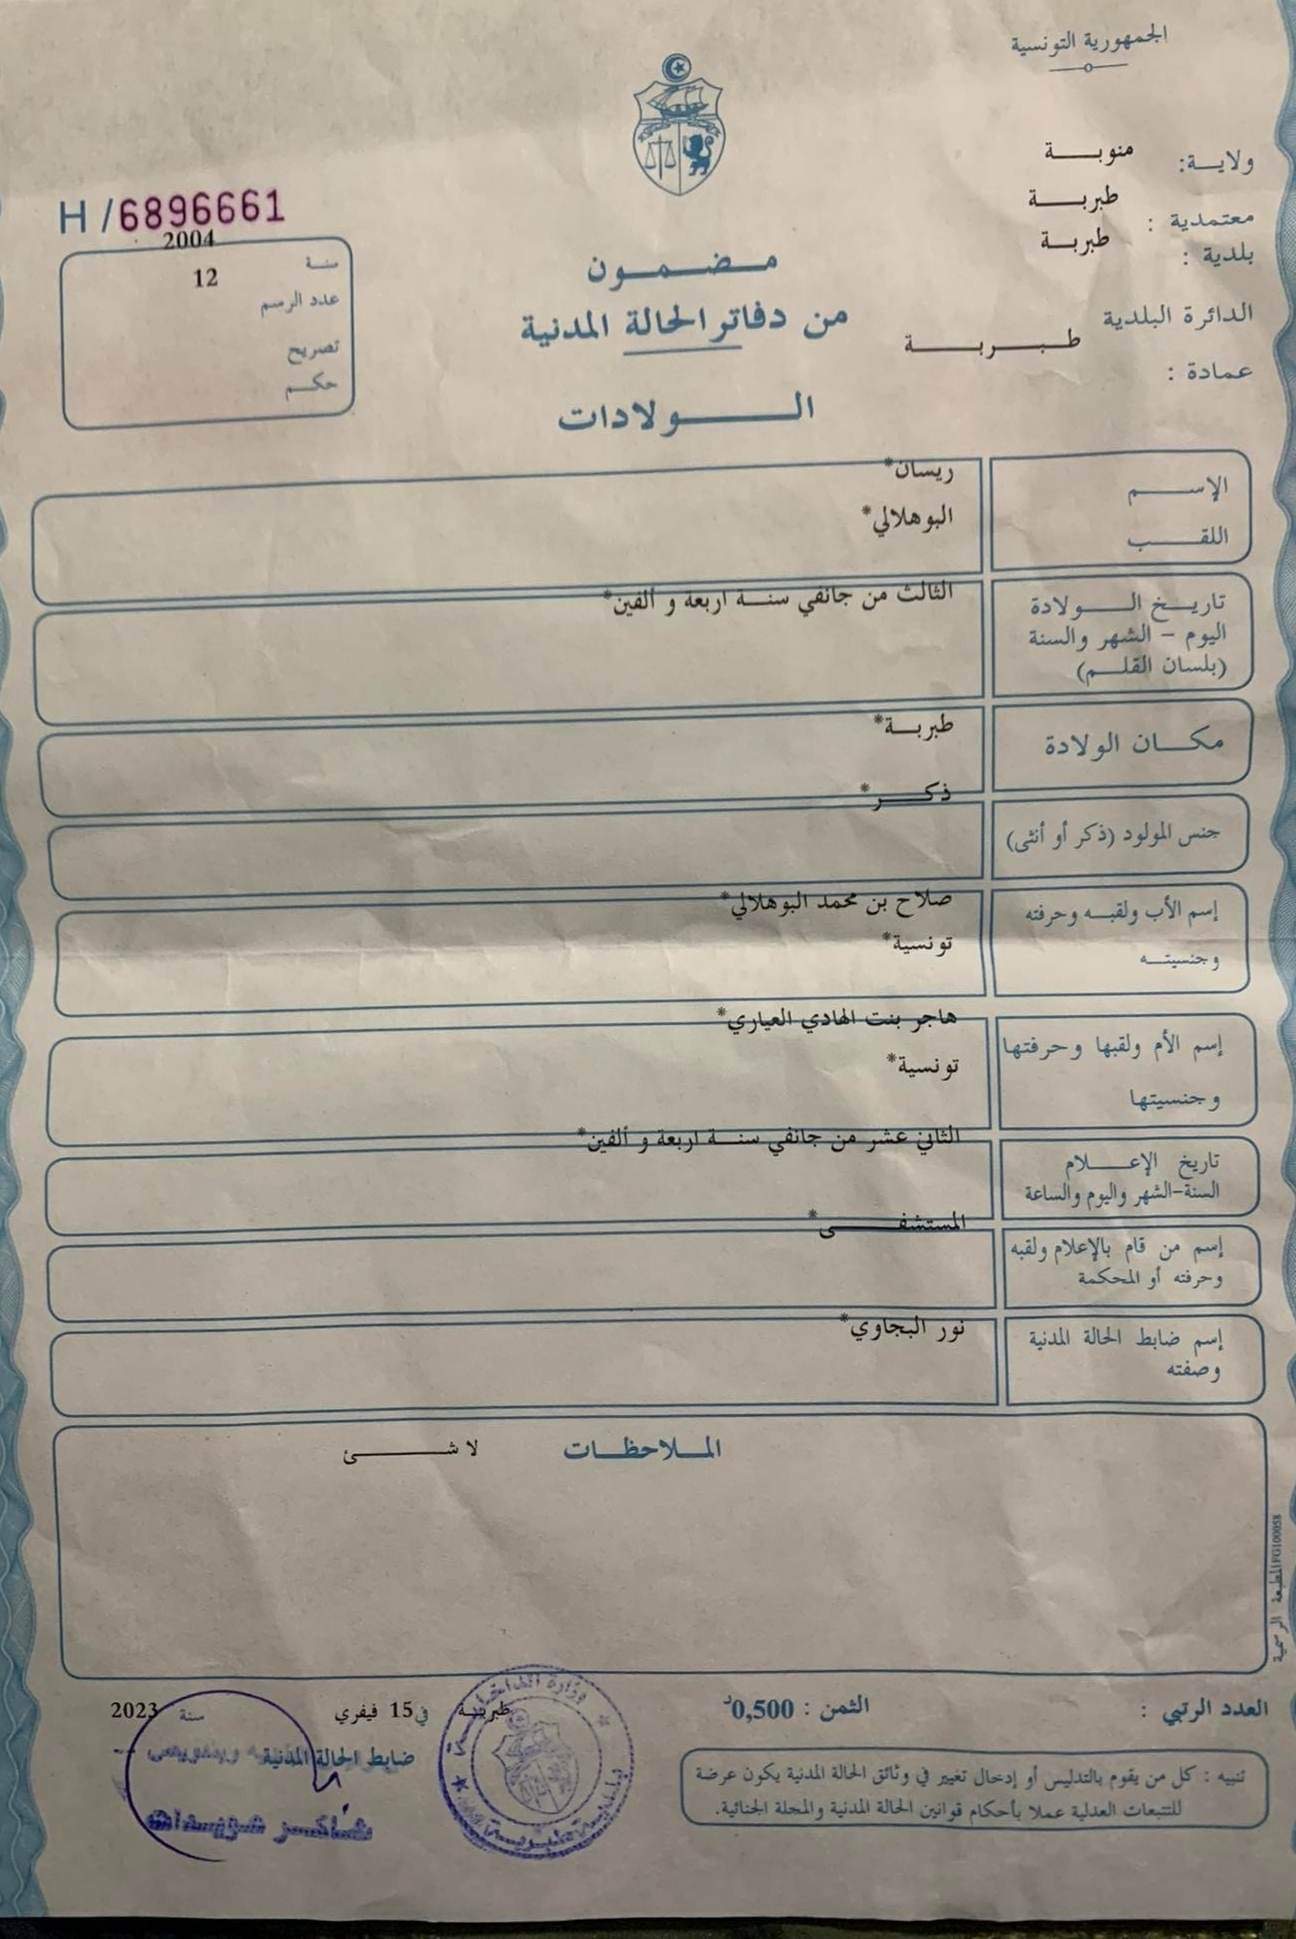 الجمهورية التونسية
ولاية: منوبة
معتمدية : طبربة
بلدية : طبربة
الدائرة البلدية
طبربة
عمادة :
H / 6896661
سنة 2004
عدد الرسم 12
تصريح
حكم
مضمون
من دفاتر الحالة المدنية
الولادات
الإسم ريسان*
اللقب البوهلالي*
تاريخ الولادة الثالث من جانفي سنة اربعة و ألفين*
اليوم - الشهر والسنة
(بلسان القلم)
مكان الولادة طبربة*
جنس المولود (ذكر أو أنثى) ذكر*
إسم الأب ولقبه وحرفته صلاح بن محمد البوهلالي*
وجنسيته تونسية*
إسم الأم ولقبها وحرفتها هاجر بنت الهادي العياري*
وجنسيتها تونسية*
تاريخ الإعلام الثاني عشر من جانفي سنة اربعة و ألفين*
السنة-الشهر واليوم والساعة
إسم من قام بالإعلام ولقبه المستشفى*
وحرفته أو المحكمة
إسم ضابط الحالة المدنية نور البجاوي*
وصفته
الملاحظات لا شئ
المطبعة الرسمية FG100058
العدد الرتبي :
الثمن : 0,500د
طبربة في 15 فيفري سنة 2023
ضابط الحالة المدنية
وزارة الداخلية
بلدية طبربة
شاكر
تنبيه : كل من يقوم بالتدليس أو إدخال تغيير في وثائق الحالة المدنية يكون عرضة
للتتبعات العدلية عملا بأحكام قوانين الحالة المدنية والمجلة الجنائية.